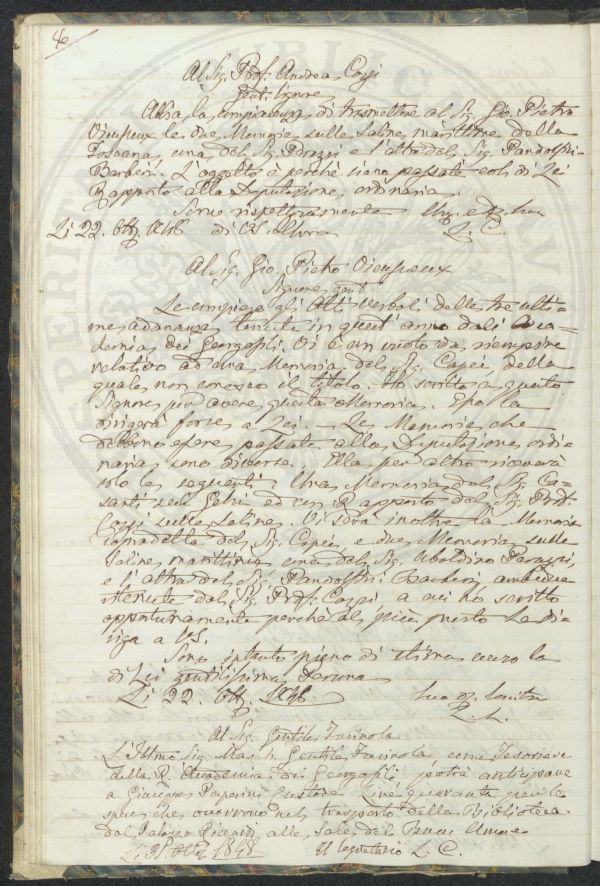 Al Sig. Prof. Andrea Cozzi
Gent. Signore
Abbia la compiacenza di trasmettere al Sig. Gio. Pietro
Vieusseux le due Memorie sulle Saline marittime della
Toscana, una del Sig. Peruzzi e l'altra del Sig. Pandolfini-
Barberi. L'oggetto è perchè siano passate coll. di Lei
Rapporto alla Deputazione ordinaria.
Sono rispettosamente
Li 22. Ott. 1848 di VS. Illma L. C.
Al Sig. Gio. Pietro Vieusseux
Signore
Le compiego gli Atti verbali delle tre ulti-
me adunanze tenute in quest'anno dall'Acca-
demia dei Georgofili. Vi è un vuoto da riempire
relativo ad una Memoria del Sig. Capei, della
quale non conosco il titolo. Ho scritto a questo
Signore per avere questa Memoria. Esso la
dirigerà forse a Lei. — Le Memorie che
debbono essere passate alla Deputazione ordi-
naria sono diverse. Ella per altro riceverà
solo le seguenti: Una Memoria del Sig. Ca-
santi sui Gelsi ed un Rapporto del Sig. Prof.
Cozzi sulle Saline. Vi sarà inoltre la Memoria
del Sig. Capei, e due Memorie sulle
Saline marittime una del Sig. Ubaldino Peruzzi,
e l'altra del Sig. Pandolfini Barberi, ambedue
ritenute dal Sig. Prof. Cozzi a cui ho scritto
opportunamente perchè al più presto Le di-
riga a VS.
Sono intanto pieno di stima verso la
di Lei gentilissima Persona
Li 22. Ott. 1848.
L. C.
Al Sig. Gentile Farinola
L'Illmo Sig. March. Gentile Farinola come Tesoriere
della R. Accademia dei Georgofili potrà anticipare
a Giuseppe Paperini Custode Lire quaranta per le
spese che occorrono nel trasporto della Biblioteca
dal Palazzo Riccardi alle Sale del Buon Umore
Li 31. Ott. 1848 Il Segretario L. C.